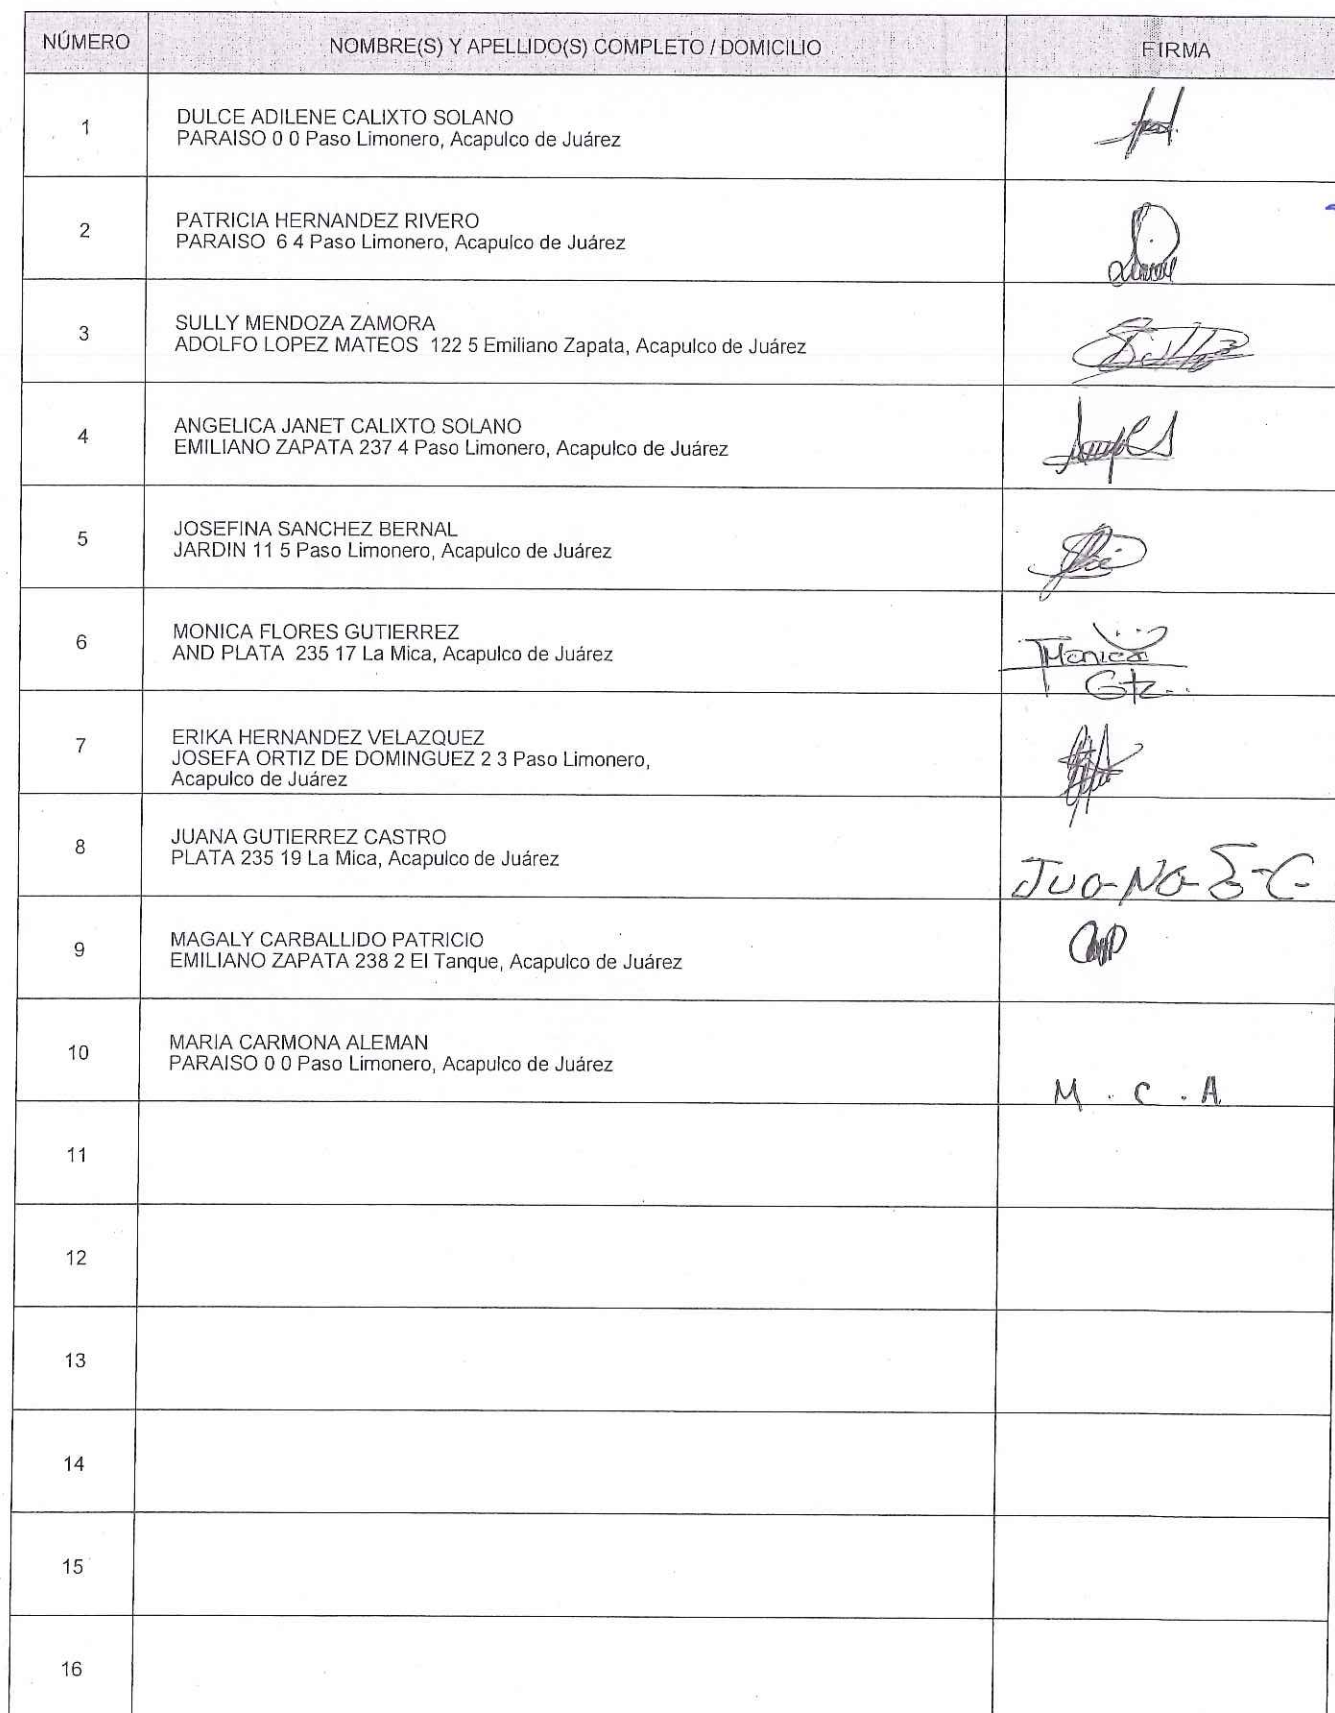 NÚMERO NOMBRE(S) Y APELLIDO(S) COMPLETO / DOMICILIO FIRMA
1 DULCE ADILENE CALIXTO SOLANO
PARAISO 0 0 Paso Limonero, Acapulco de Juárez
2 PATRICIA HERNANDEZ RIVERO
PARAISO 6 4 Paso Limonero, Acapulco de Juárez
3 SULLY MENDOZA ZAMORA
ADOLFO LOPEZ MATEOS 122 5 Emiliano Zapata, Acapulco de Juárez
4 ANGELICA JANET CALIXTO SOLANO
EMILIANO ZAPATA 237 4 Paso Limonero, Acapulco de Juárez
5 JOSEFINA SANCHEZ BERNAL
JARDIN 11 5 Paso Limonero, Acapulco de Juárez
6 MONICA FLORES GUTIERREZ
AND PLATA 235 17 La Mica, Acapulco de Juárez
Monica
Gtz..
7 ERIKA HERNANDEZ VELAZQUEZ
JOSEFA ORTIZ DE DOMINGUEZ 2 3 Paso Limonero,
Acapulco de Juárez
8 JUANA GUTIERREZ CASTRO
PLATA 235 19 La Mica, Acapulco de Juárez
9 MAGALY CARBALLIDO PATRICIO
EMILIANO ZAPATA 238 2 El Tanque, Acapulco de Juárez
10 MARIA CARMONA ALEMAN
PARAISO 0 0 Paso Limonero, Acapulco de Juárez
M . C . A
11
12
13
14
15
16